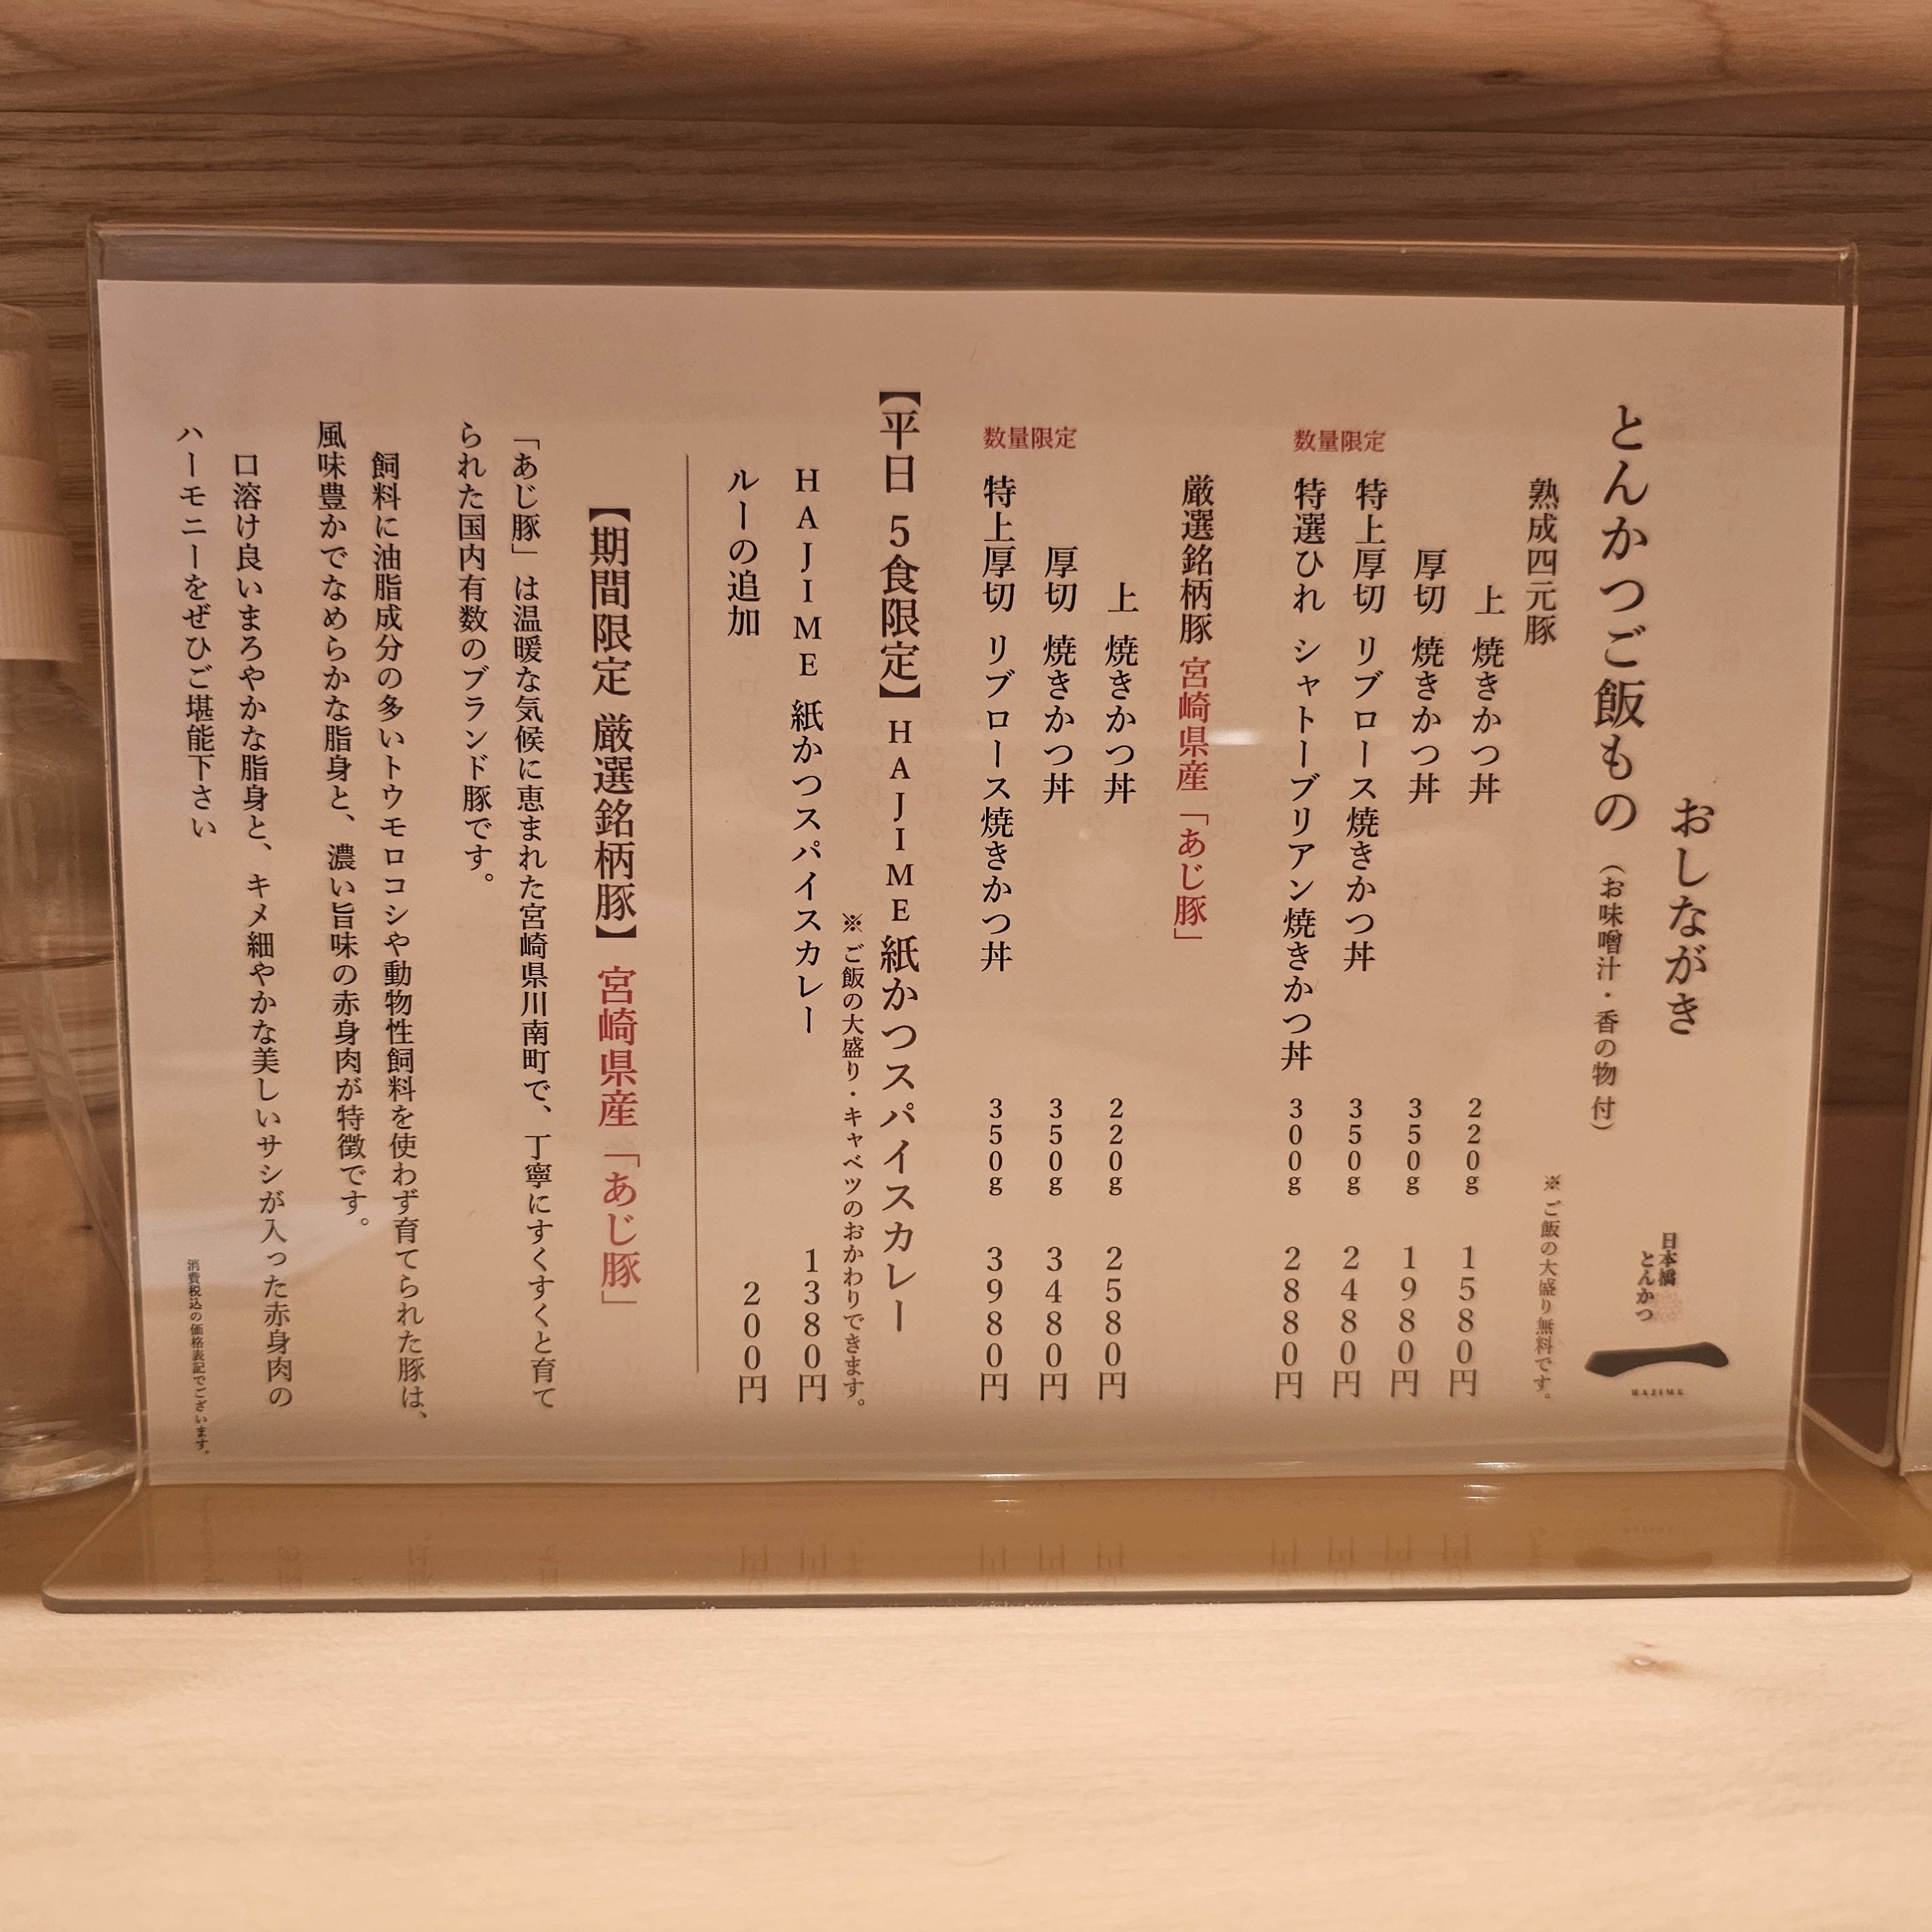 おしながき
日本橋
とんかつ
一
HAJIME
とんかつご飯もの（お味噌汁・香の物 付）
熟成四元豚 ※ご飯の大盛り無料です。
上 焼きかつ丼 220g 1580円
厚切 焼きかつ丼 350g 1980円
特上厚切 リブロース焼きかつ丼 350g 2480円
数量限定
特選ひれ シャトーブリアン焼きかつ丼 300g 2880円
厳選銘柄豚 宮崎県産「あじ豚」
上 焼きかつ丼 220g 2580円
厚切 焼きかつ丼 350g 3480円
数量限定
特上厚切 リブロース焼きかつ丼 350g 3980円
【平日 5食限定】HAJIME紙かつスパイスカレー
※ご飯の大盛り・キャベツのおかわりできます。
HAJIME 紙かつスパイスカレー 1380円
ルーの追加 200円
【期間限定 厳選銘柄豚】 宮崎県産「あじ豚」
「あじ豚」は温暖な気候に恵まれた宮崎県川南町で、丁寧にすくすくと育て
られた国内有数のブランド豚です。
飼料に油脂成分の多いトウモロコシや動物性飼料を使わず育てられた豚は、
風味豊かでなめらかな脂身と、濃い旨味の赤身肉が特徴です。
口溶け良いまろやかな脂身と、キメ細やかな美しいサシが入った赤身肉の
ハーモニーをぜひご堪能下さい
消費税込の価格表記でございます。